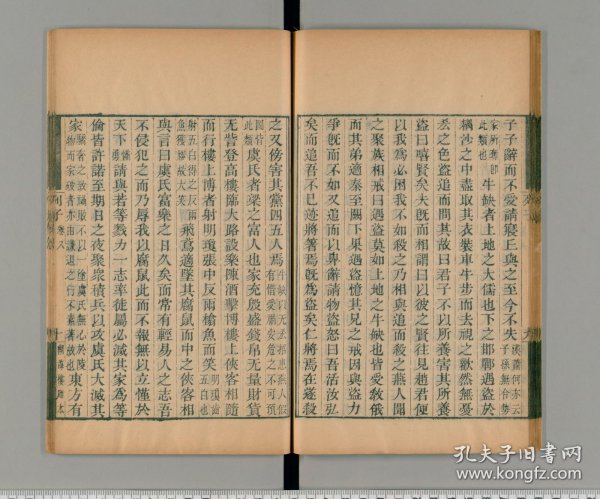 子子辭而不受請寢丘與之至今不失漢蕭何亦云子孫無令勢
家所奪即此類也牛缺者上地之大儒也下之邯鄲遇盜於
耦沙之中盡取其衣裝車牛步而去視之歡然無憂
吝之色盜追而問其故曰君子不以所養害其所養
盜曰嘻賢矣夫既而相謂曰以彼之賢往見趙君使
以我為必困我不如殺之乃相與追而殺之燕人聞
之聚族相戒曰遇盜莫如上地之牛缺也皆受教俄
而其弟適秦至關下果遇盜憶其兄之戒因與盜力
爭既而不如又追而以卑辭請物盜怒曰吾活汝弘
矣而追吾不已迹將箸焉既為盜矣仁將焉在遂殺
之又傍害其黨四五人焉
此類虞氏者梁之富人也家充殷盛錢帛无量財貨
无訾登高樓臨大路設樂陳酒擊博樓上俠客相隨
而行樓上博者射明瓊張中反兩㯓魚而笑
飛鳶適墜其腐鼠而中之俠客相
與言曰虞氏富樂之日久矣而常有輕易人之志吾
不侵犯之而乃辱我以腐鼠此而不報無以立慬於
天下請與若等戮力一志率徒屬必滅其家為等
倫皆許諾至期日之夜聚衆積兵以攻虞氏大滅其
家東方有
列子卷八
孔夫子旧书网
www.kongfz.com